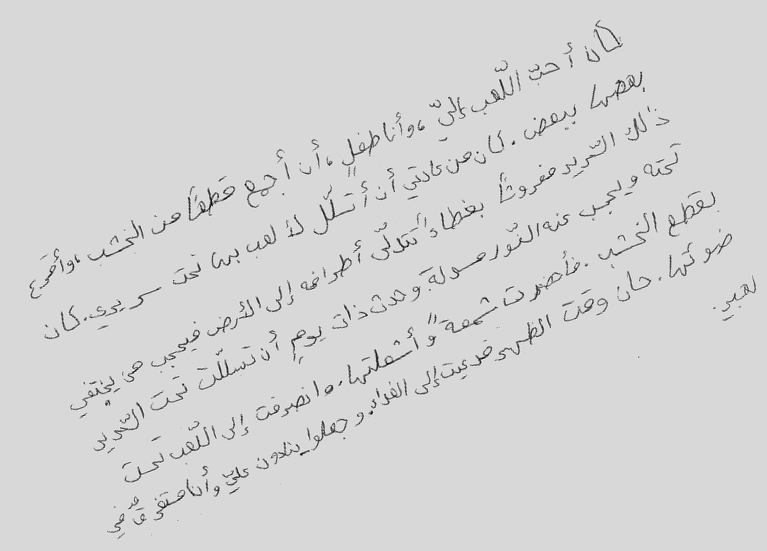 كان أحبّ اللّعب إليّ، وأنا طفلٍ، أن أجمع قطعًا من الخشب، وأقرع
بعضها ببعض. كان من عادتي أن أتسلّل لألعب بها تحت سريري. كان
ذلك السّرير مفروشًا بغطاءٍ تتدلّى أطرافه إلى الأرض فيحجب من يختفي
تحته ويحجب عنه النّور بسهولة وحدث ذات يومٍ أن تسلّلت تحت السّرير
بقطع الخشب. فأحضرت شمعةً وأشعلتها. وانصرفت إلى اللّعب تحت
ضوئها. حان وقت الظهر فدعيت إلى الغداء. وجعلوا ينادون عليّ وأنا مستغرقٌ في
لعبي.